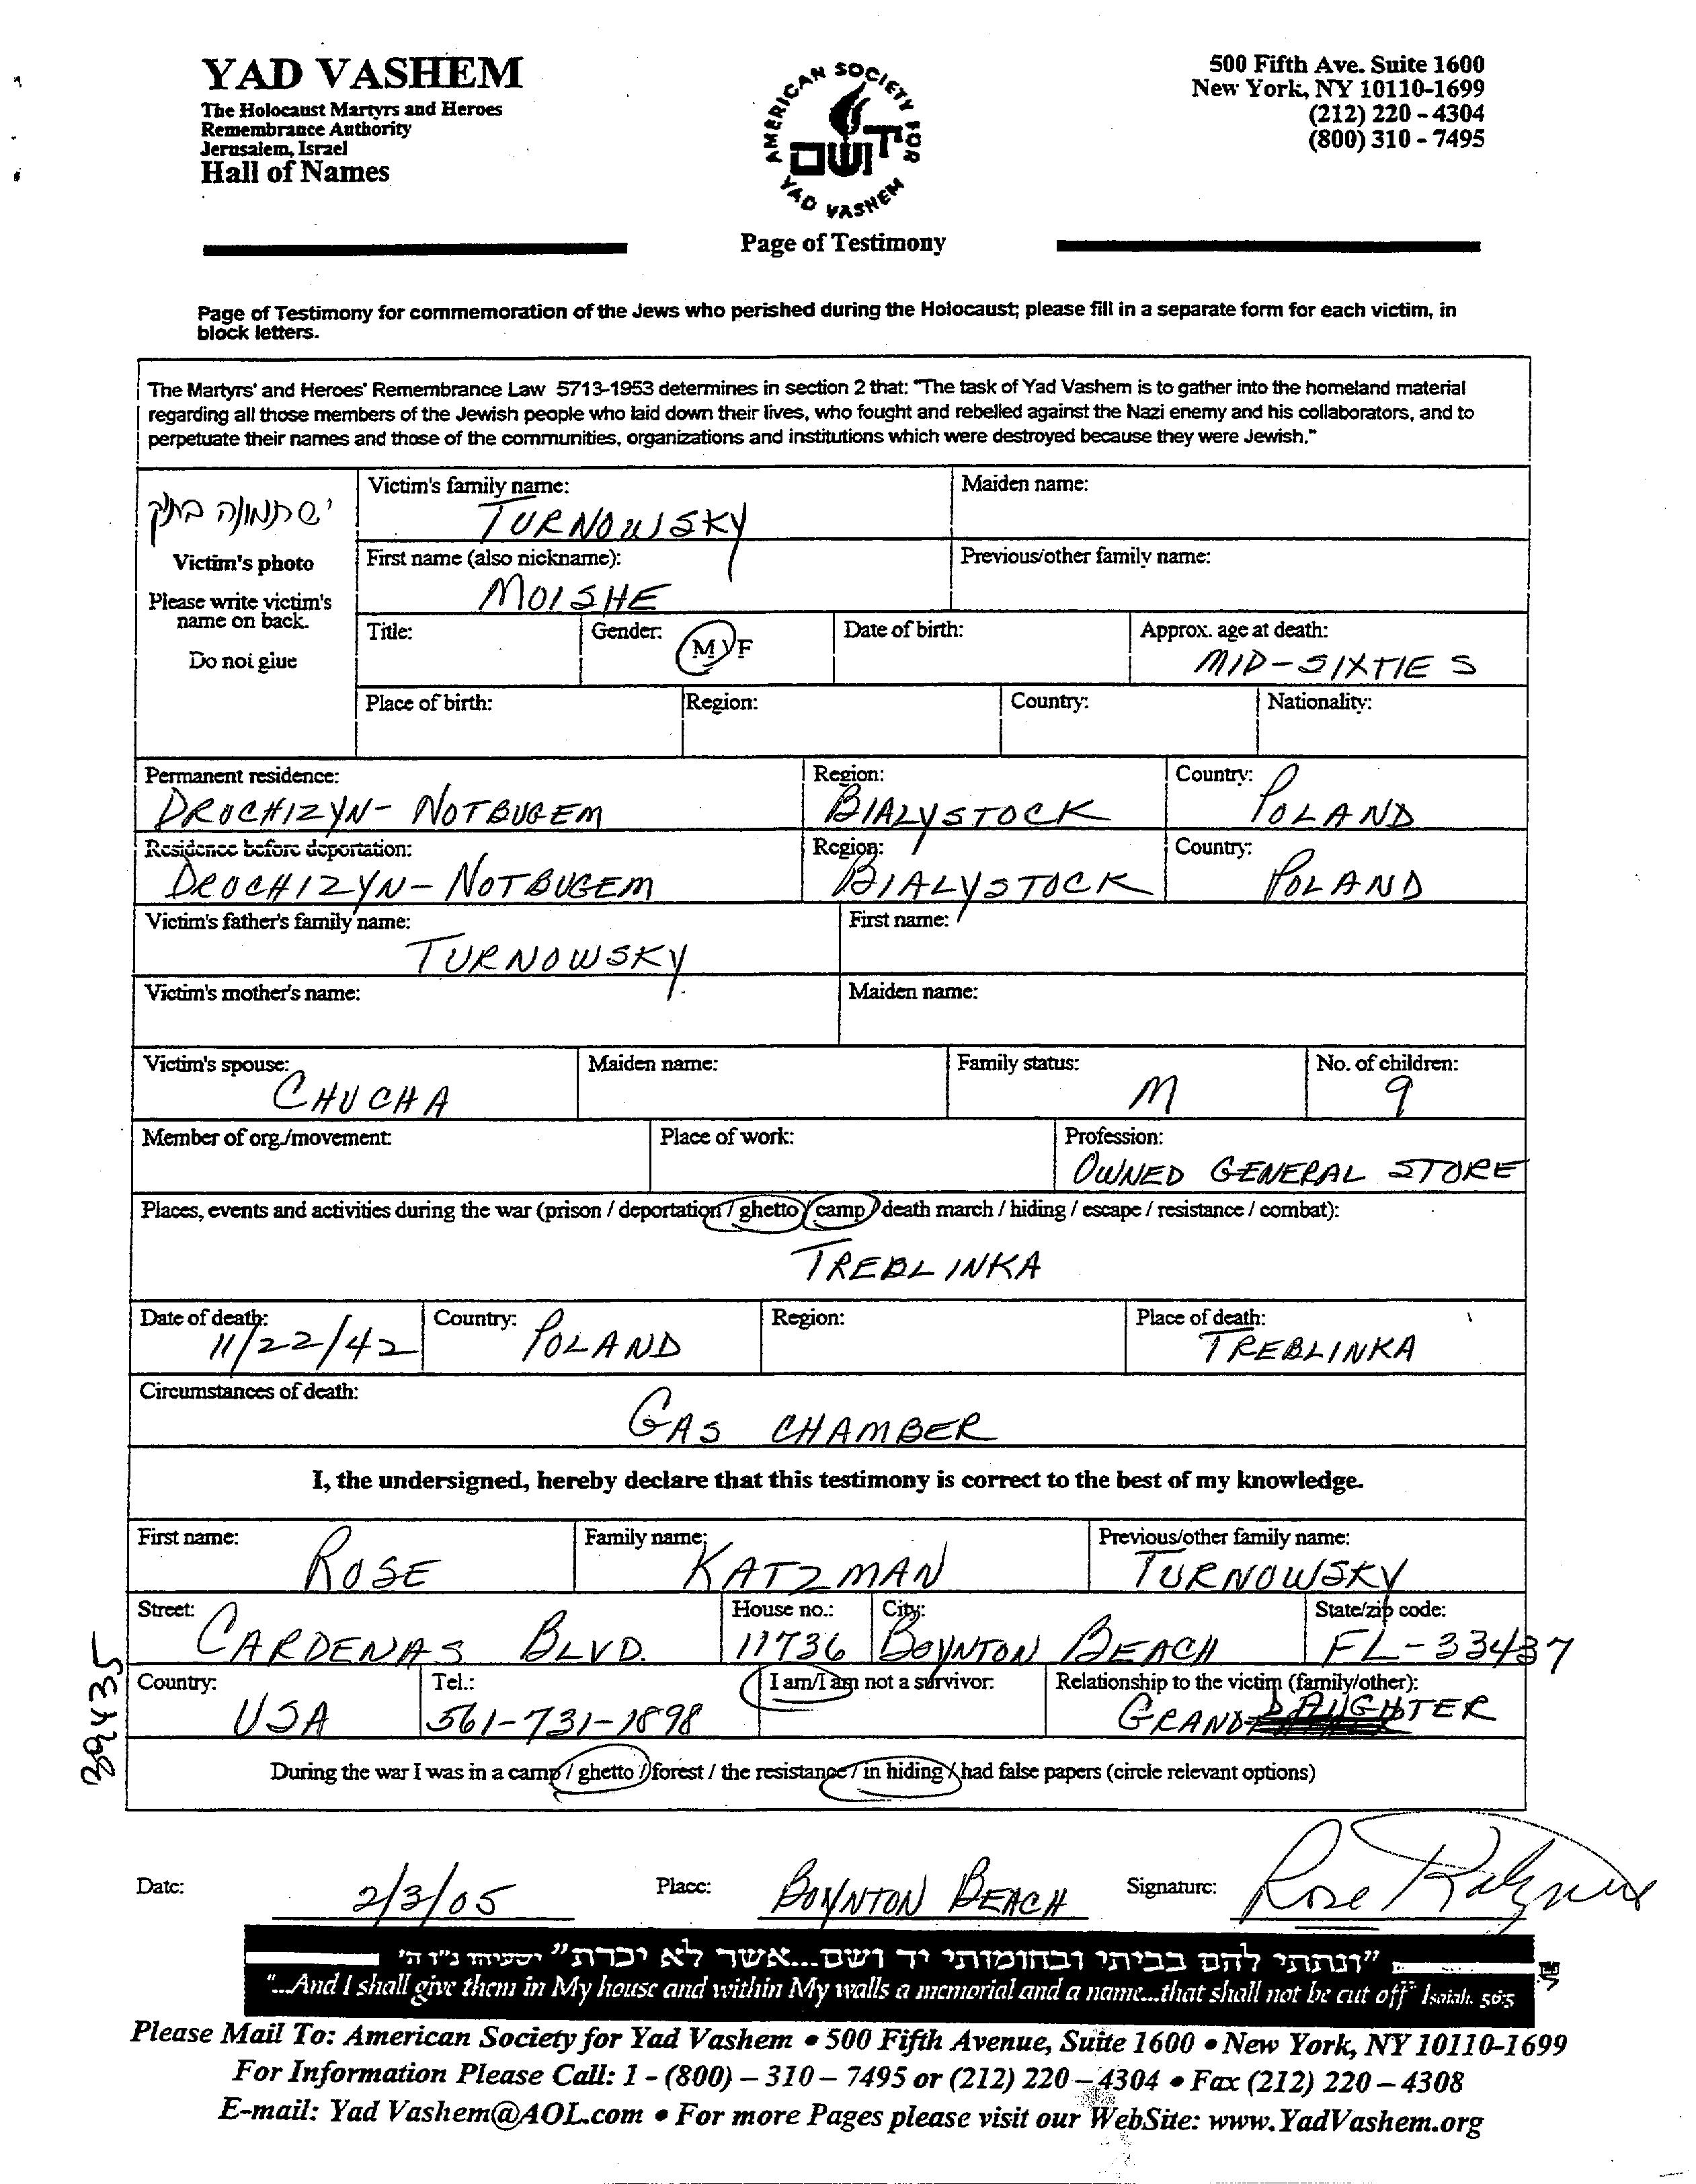 YAD VASHEM
The Holocaust Martyrs and Heroes
Remembrance Authority
Jerusalem, Israel
Hall of Names
AMERICAN SOCIETY FOR
יד ושם
YAD VASHEM
500 Fifth Ave. Suite 1600
New York, NY 10110-1699
(212) 220 - 4304
(800) 310 - 7495
Page of Testimony
Page of Testimony for commemoration of the Jews who perished during the Holocaust; please fill in a separate form for each victim, in
block letters.
The Martyrs' and Heroes' Remembrance Law 5713-1953 determines in section 2 that: "The task of Yad Vashem is to gather into the homeland material
regarding all those members of the Jewish people who laid down their lives, who fought and rebelled against the Nazi enemy and his collaborators, and to
perpetuate their names and those of the communities, organizations and institutions which were destroyed because they were Jewish."
יש תמונה בתיק
Victim's photo
Please write victim's
name on back.
Do not glue
Victim's family name: TURNOWSKY
Maiden name:
First name (also nickname): MOISHE
Previous/other family name:
Title:
Gender: M / F
Date of birth:
Approx. age at death: MID-SIXTIES
Place of birth:
Region:
Country:
Nationality:
Permanent residence: DROCHIZYN- NOTBUGEM
Region: BIALYSTOCK
Country: POLAND
Residence before deportation: DROCHIZYN- NOTBUGEM
Region: BIALYSTOCK
Country: POLAND
Victim's father's family name: TURNOWSKY
First name:
Victim's mother's name:
Maiden name:
Victim's spouse: CHUCHA
Maiden name:
Family status: M
No. of children: 9
Member of org./movement:
Place of work:
Profession: OWNED GENERAL STORE
Places, events and activities during the war (prison / deportation / ghetto / camp / death march / hiding / escape / resistance / combat):
TREBLINKA
Date of death: 11/22/42
Country: POLAND
Region:
Place of death: TREBLINKA
Circumstances of death: GAS CHAMBER
I, the undersigned, hereby declare that this testimony is correct to the best of my knowledge.
First name: ROSE
Family name: KATZMAN
Previous/other family name: TURNOWSKY
Street: CARDENAS BLVD.
House no.: 11736
City: BOYNTON BEACH
State/zip code: FL-33437
Country: USA
Tel.: 561-731-1898
I am/I am not a survivor:
Relationship to the victim (family/other): GRAND-DAUGHTER
During the war I was in a camp / ghetto / forest / the resistance / in hiding / had false papers (circle relevant options)
39435
Date: 2/3/05
Place: BOYNTON BEACH
Signature: Rose Katzman
"ונתתי להם בביתי ובחומותי יד ושם...אשר לא יכרת" ישעיהו נ"ו ה'
"...And I shall give them in My house and within My walls a memorial and a name...that shall not be cut off" Isaiah. 56:5
Please Mail To: American Society for Yad Vashem • 500 Fifth Avenue, Suite 1600 • New York, NY 10110-1699
For Information Please Call: 1 - (800) – 310 – 7495 or (212) 220 – 4304 • Fax (212) 220 – 4308
E-mail: Yad Vashem@AOL.com • For more Pages please visit our WebSite: www.YadVashem.org